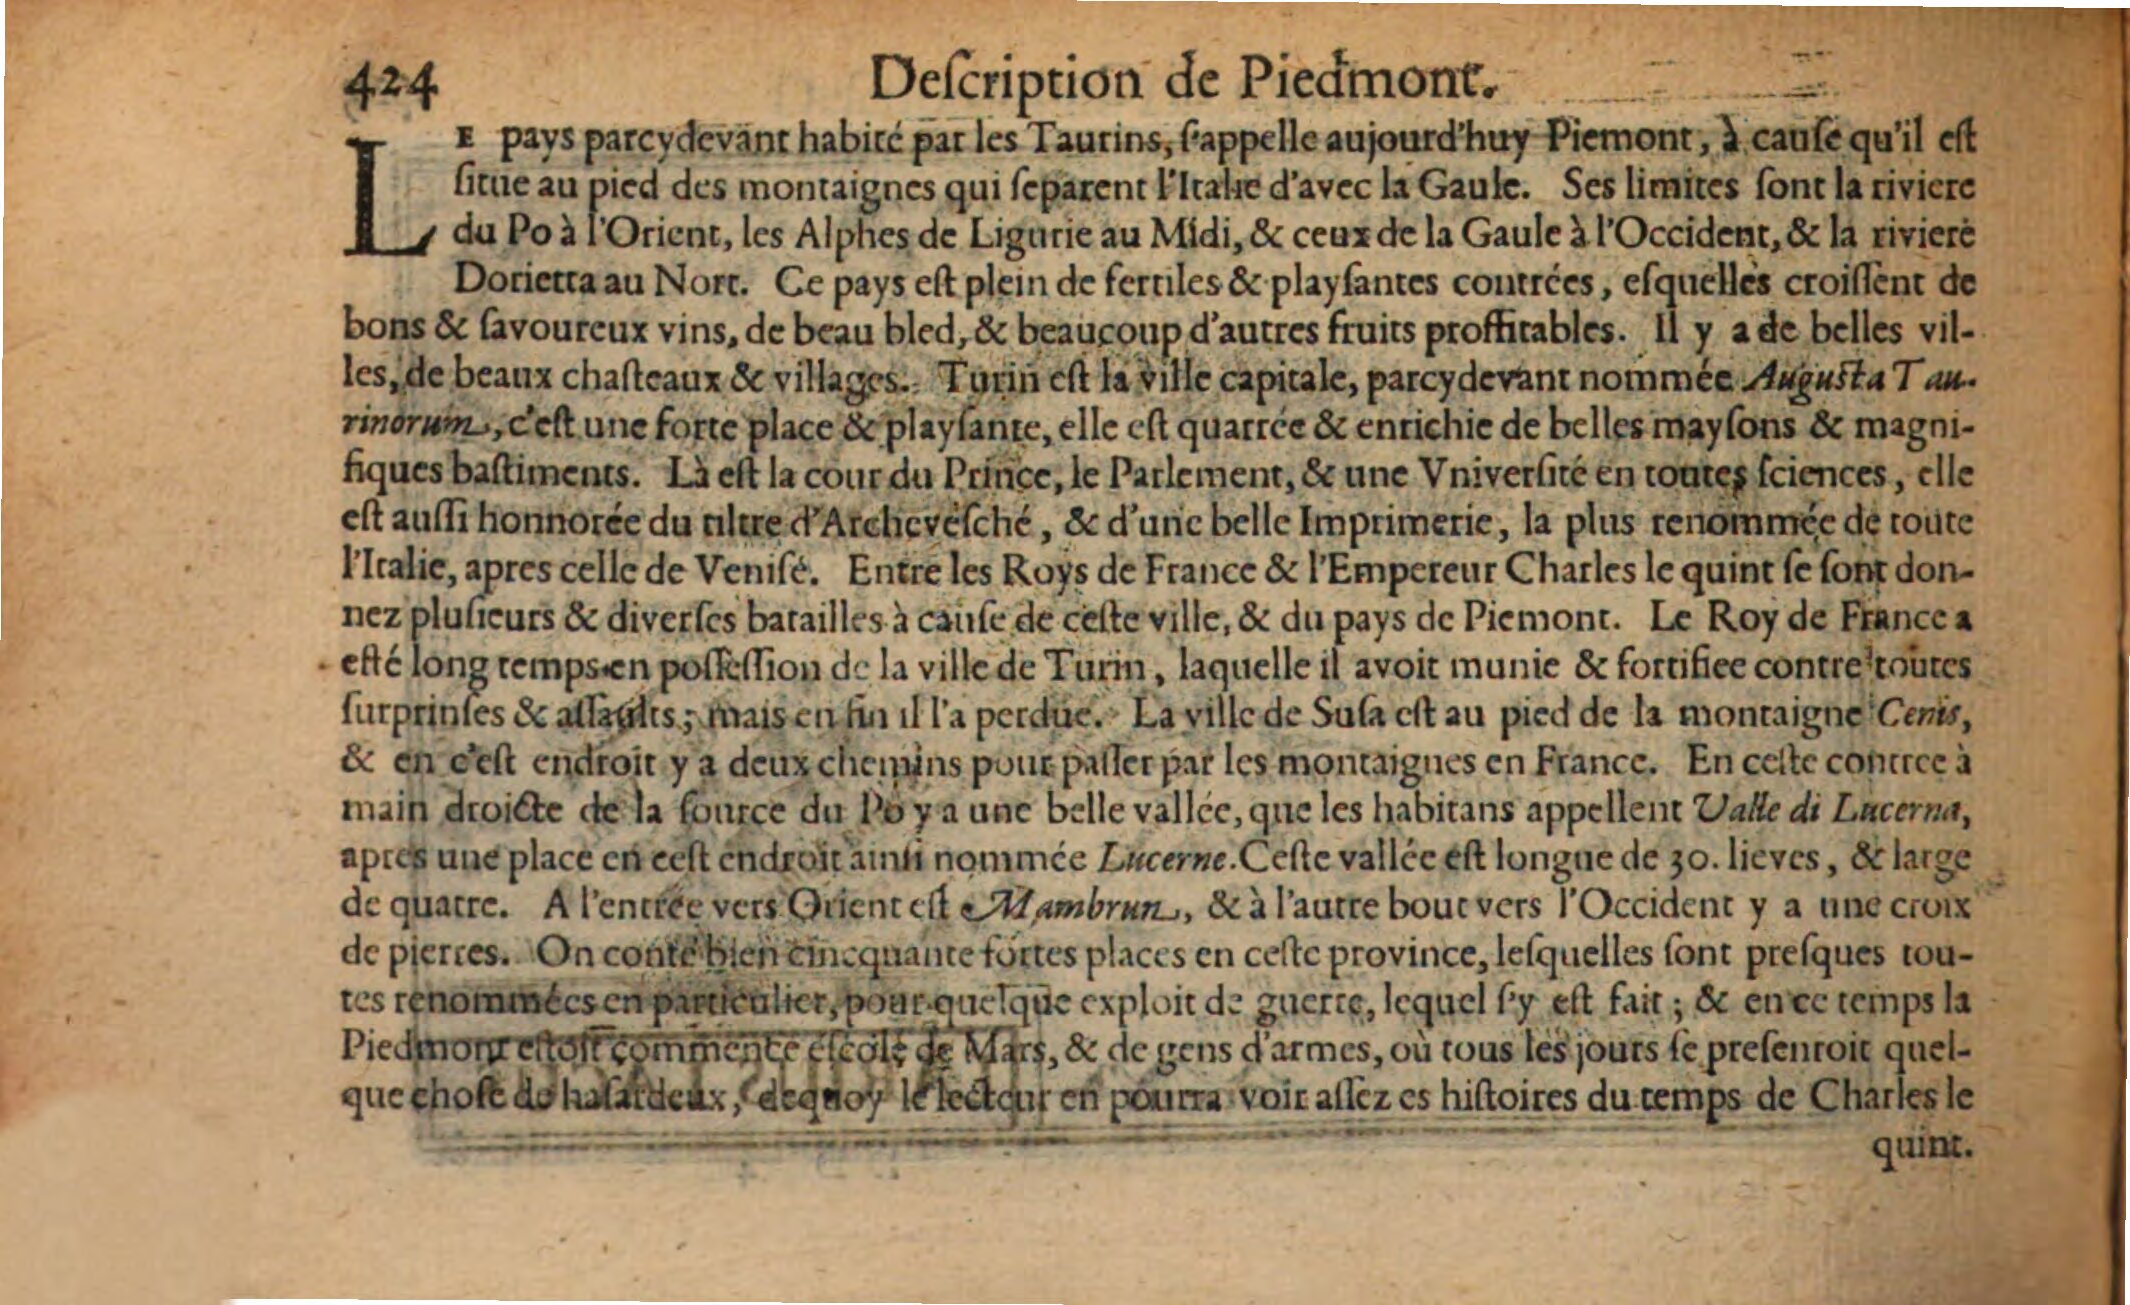 424 Deſcription de Piedmont.
LE pays parcydevant habité par les Taurins, ſ'appelle aujourd'huy Piemont, à cauſe qu'il eſt
ſitue au pied des montaignes qui ſeparent l'Italie d'avec la Gaule. Ses limites ſont la riviere
du Po à l'Orient, les Alphes de Ligurie au Midi, & ceux de la Gaule à l'Occident, & la riviere
Dorietta au Nort. Ce pays eſt plein de fertiles & playſantes contrées, eſquelles croiſſent de
bons & ſavoureux vins, de beau bled, & beaucoup d'autres fruits proffitables. Il y a de belles vil-
les, de beaux chaſteaux & villages. Turin eſt la ville capitale, parcydevant nommée Auguſta Tau-
rinorum, c'eſt une forte place & playſante, elle eſt quarrée & enrichie de belles mayſons & magni-
fiques baſtiments. Là eſt la cour du Prince, le Parlement, & une Vniverſité en toutes ſciences, elle
eſt auſſi honnorée du tiltre d'Archeveſché, & d'une belle Imprimerie, la plus renommée de toute
l'Italie, apres celle de Veniſe. Entre les Roys de France & l'Empereur Charles le quint ſe ſont don-
nez pluſieurs & diverſes batailles à cauſe de ceſte ville, & du pays de Piemont. Le Roy de France a
eſté long temps en poſſeſſion de la ville de Turin, laquelle il avoit munie & fortifiee contre toutes
ſurprinſes & aſſaults; mais en fin il l'a perdue. La ville de Suſa eſt au pied de la montaigne Cenis,
& en c'eſt endroit y a deux chemins pour paſſer par les montaignes en France. En ceſte contree à
main droicte de la ſource du Po y a une belle vallée, que les habitans appellent Valle di Lucerna,
apres une place en ceſt endroit ainſi nommée Lucerne. Ceſte vallée eſt longue de 30. lieves, & large
de quatre. A l'entrée vers Orient eſt Mambrun, & à l'autre bout vers l'Occident y a une croix
de pierres. On conte bien cincquante fortes places en ceſte province, leſquelles ſont preſques tou-
tes renommées en particulier, pour quelque exploit de guerre, lequel ſ'y eſt fait; & en ce temps la
Piedmont eſtoit comme une eſcole de Mars, & de gens d'armes, où tous les jours ſe preſentoit quel-
que choſe de haſardeux, dequoy le lecteur en pourra voir aſſez es hiſtoires du temps de Charles le
quint.